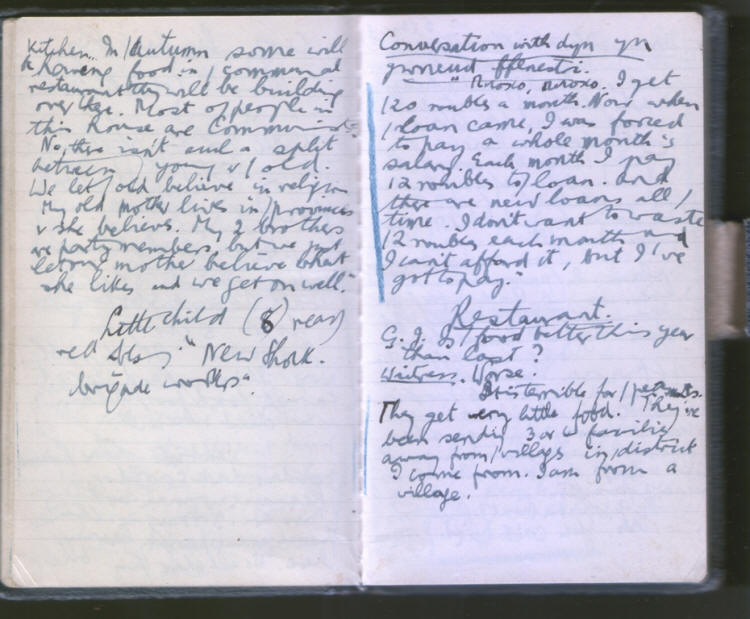 Kitchen. In / Autumn some will
be having food in / communal
restaurant they will be building
over there. Most of people in
this house are Communists.
No, there isn't such a split
between / young & / old.
We let / old believe in religion
My old mother lives in / provinces
& she believes. My 2 brothers
are party members, but we just
let my mother believe what
she likes and we get on well."
Little child (8) read
red "New Shock
brigade workers".
Conversation with dyn yn
gwneud ffenestri.
" I get
120 roubles a month. Now when
/ loan came, I was forced
to pay a whole month's
salary. Each month I pay
12 roubles to / loan. And
there are new loans all /
time. I don't want to waste
12 roubles each month and
I can't afford it, but I've
got to pay."
Restaurant.
G. J. Is / food better this year
than last?
Waitress. Worse.
It is terrible for / peasants.
They get very little food. They've
been sending 3 or 4 families
away from / villages in / district
I come from. I am from a
village.